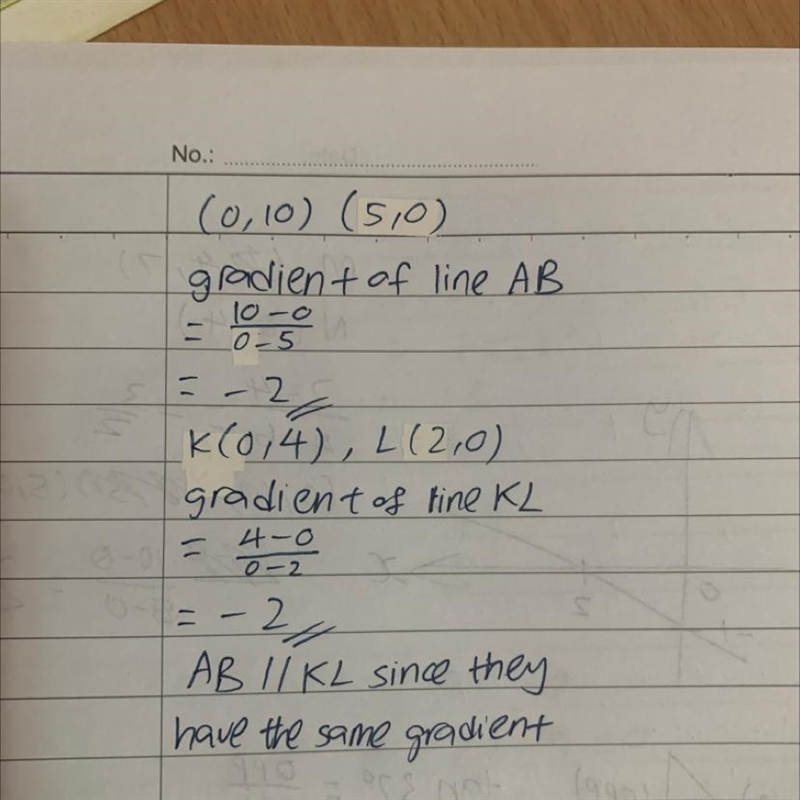 No.:
(0,10) (5,0)
gradient of line AB
= 10-0 / 0-5
= -2
K(0,4), L(2,0)
gradient of line KL
= 4-0 / 0-2
= -2
AB // KL since they
have the same gradient